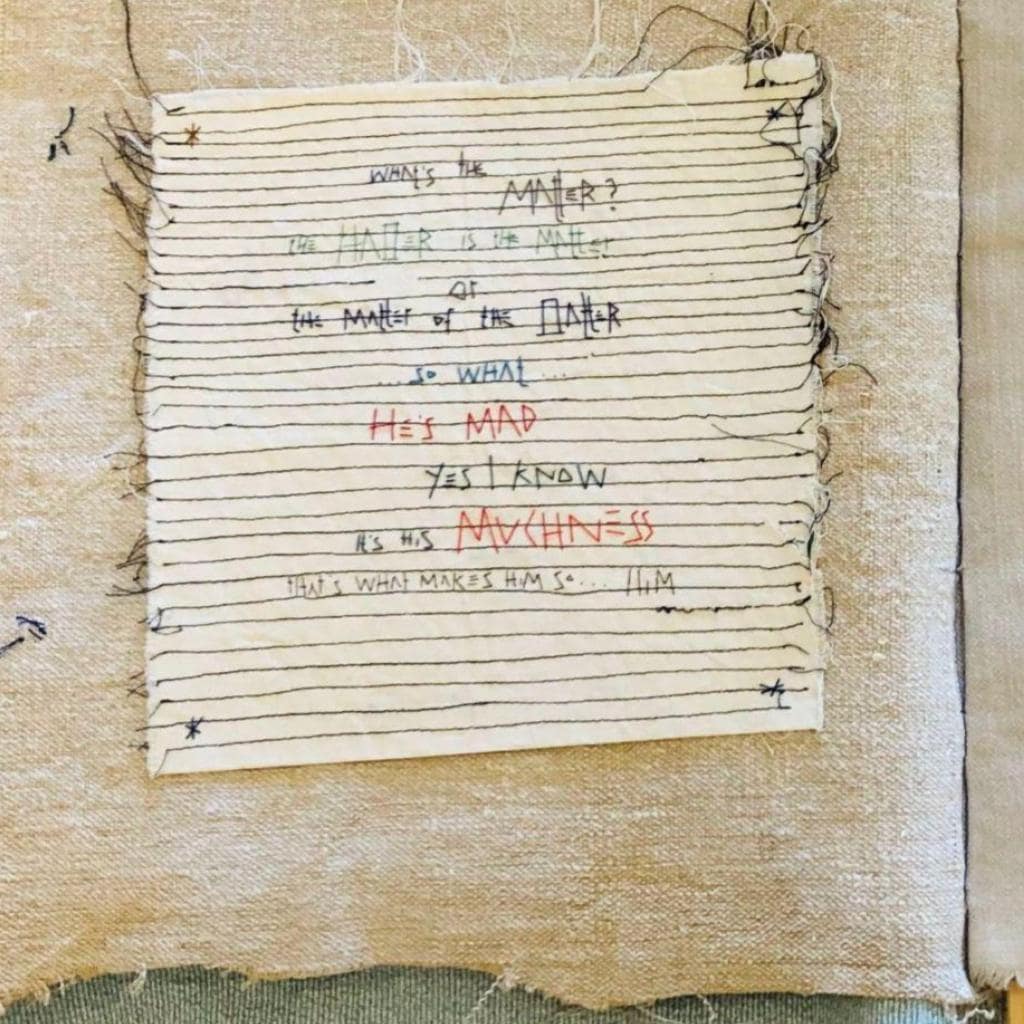 WHAt'S tHE
MAttER?
tHE HAttER iS tHE MAttEr
Or
tHE MAttEr of tHE HAttER
...So WHAt...
HE'S MAD
YES I KNOW
It'S HiS MUCHNESS
tHAt'S WHAt MAKES HiM So... HiM